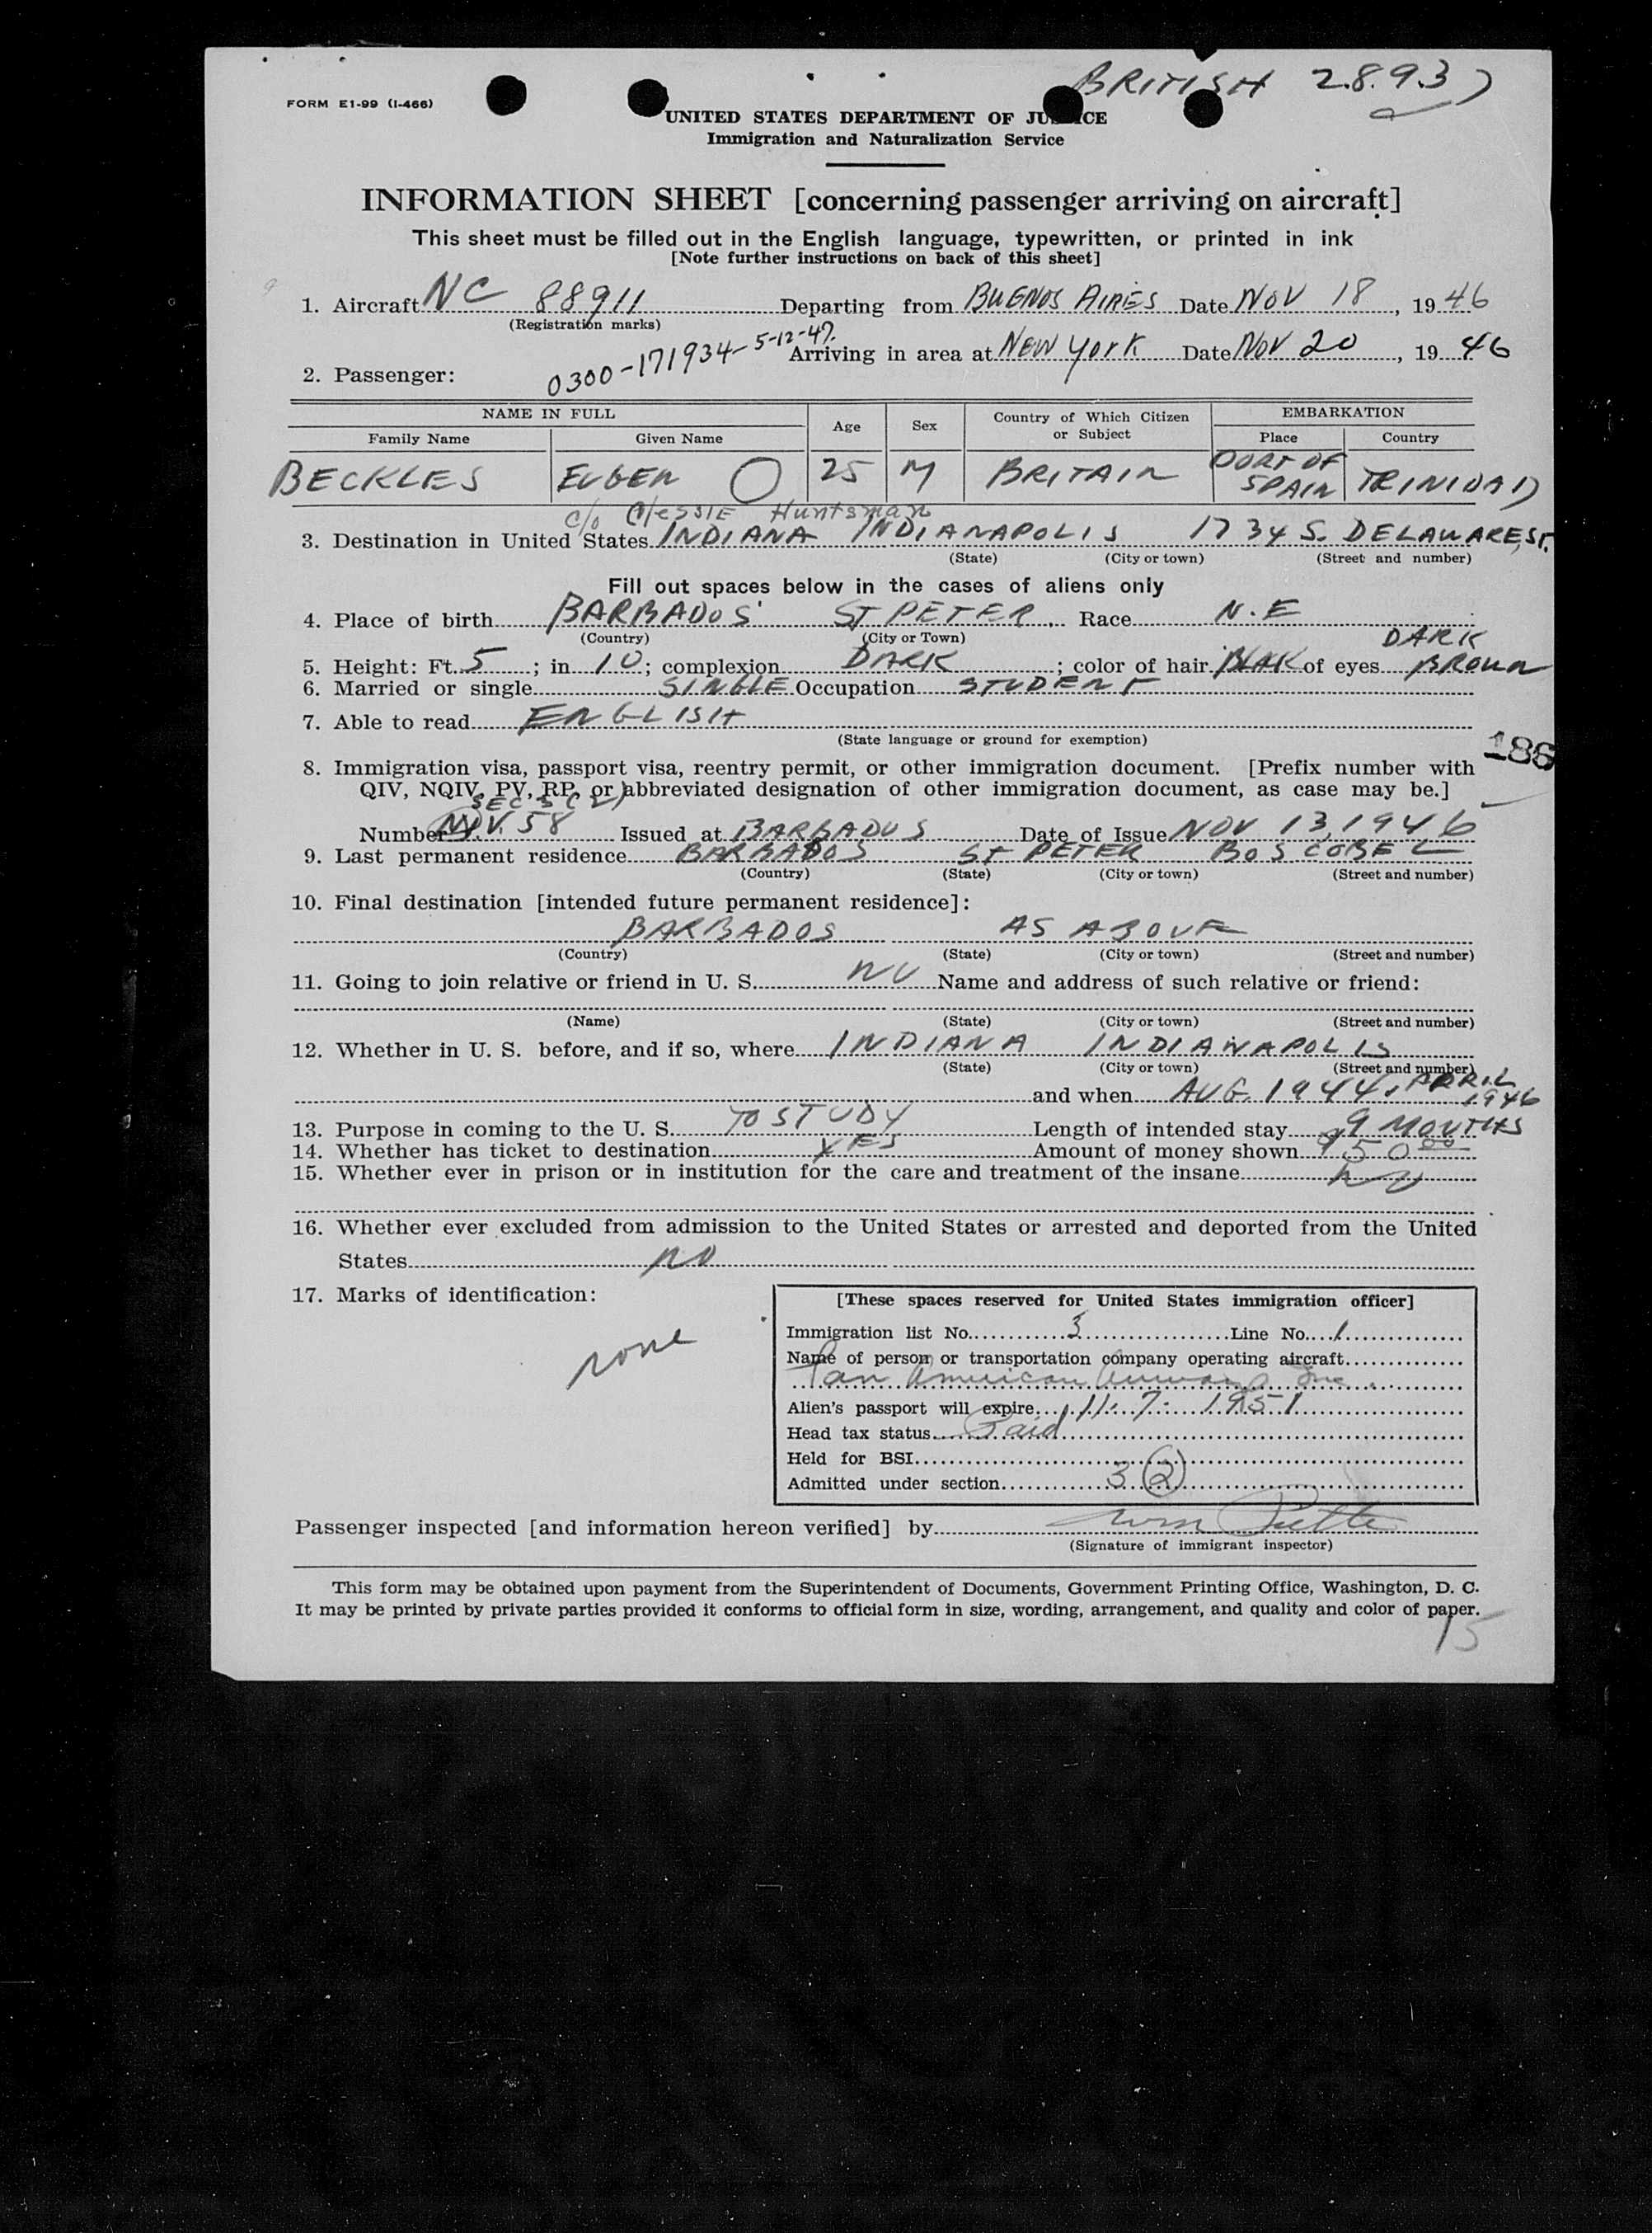 BRITISH 2.8.9.3
FORM E1-99 (I-466)
UNITED STATES DEPARTMENT OF JUSTICE
Immigration and Naturalization Service
INFORMATION SHEET [concerning passenger arriving on aircraft]
This sheet must be filled out in the English language, typewritten, or printed in ink
[Note further instructions on back of this sheet]
1. Aircraft NC 88911 Departing from BUENOS AIRES Date NOV 18, 1946
(Registration marks)
0300-171934-5-12-47. Arriving in area at NEW YORK Date NOV 20, 1946
2. Passenger:
NAME IN FULL Age Sex Country of Which Citizen or Subject EMBARKATION
Family Name Given Name Place Country
BECKLES EUGEN O 25 M BRITAIN PORT OF SPAIN TRINIDAD
c/o Huntsman
3. Destination in United States INDIANA INDIANAPOLIS 1734 S. DELAWARE, ST.
(State) (City or town) (Street and number)
Fill out spaces below in the cases of aliens only
4. Place of birth BARBADOS ST PETER Race N.E
(Country) (City or Town)
DARK
5. Height: Ft. 5; in 10; complexion DARK; color of hair BLAK of eyes BROWN
6. Married or single SINGLE Occupation STUDENT
7. Able to read ENGLISH
(State language or ground for exemption)
186
8. Immigration visa, passport visa, reentry permit, or other immigration document. [Prefix number with
QIV, NQIV, PV, RP, or abbreviated designation of other immigration document, as case may be.]
SEC 3 (2)
Number 58 Issued at BARBADOS Date of Issue NOV 13, 1946
9. Last permanent residence BARBADOS ST PETER BOSCOBEL
(Country) (State) (City or town) (Street and number)
10. Final destination [intended future permanent residence]:
BARBADOS AS ABOVE
(Country) (State) (City or town) (Street and number)
11. Going to join relative or friend in U. S. NO Name and address of such relative or friend:
(Name) (State) (City or town) (Street and number)
12. Whether in U. S. before, and if so, where INDIANA INDIANAPOLIS
(State) (City or town) (Street and number)
and when AUG. 1944. APRIL 1946
13. Purpose in coming to the U. S. TO STUDY Length of intended stay 9 MONTHS
14. Whether has ticket to destination YES Amount of money shown 50 00
15. Whether ever in prison or in institution for the care and treatment of the insane no
16. Whether ever excluded from admission to the United States or arrested and deported from the United
States no
17. Marks of identification:
none
[These spaces reserved for United States immigration officer]
Immigration list No. 3 Line No. 1
Name of person or transportation company operating aircraft
Pan American Airways Inc.
Alien's passport will expire 11-7-1951
Head tax status Paid
Held for BSI
Admitted under section 3 (2)
Passenger inspected [and information hereon verified] by
(Signature of immigrant inspector)
This form may be obtained upon payment from the Superintendent of Documents, Government Printing Office, Washington, D. C.
It may be printed by private parties provided it conforms to official form in size, wording, arrangement, and quality and color of paper.
15